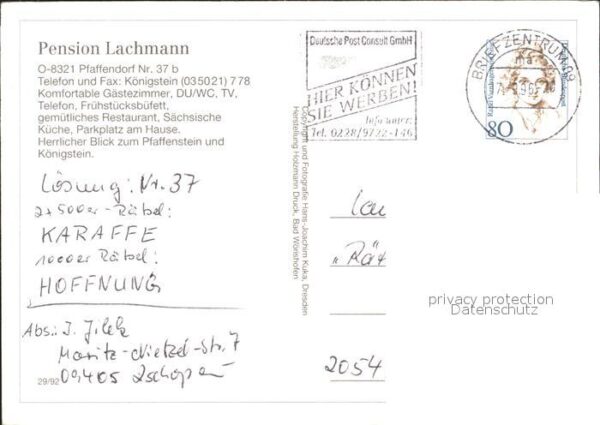 Pension Lachmann
O-8321 Pfaffendorf Nr. 37 b
Telefon und Fax: Königstein (035021) 7 78
Komfortable Gästezimmer, DU/WC, TV,
Telefon, Frühstücksbüfett,
gemütliches Restaurant, Sächsische
Küche, Parkplatz am Hause.
Herrlicher Blick zum Pfaffenstein und
Königstein.
Lösung: Nr. 37
2 x 500er-Rätsel:
KARAFFE
1000er Rätsel:
HOFFNUNG
Abs.: J. Jilek
Moritz-Nietzel-Str. 7
09405 Zschopau
29/92
Copyright und Fotografie Hans-Joachim Kuka, Dresden
Herstellung Holzmann Druck, Bad Wörishofen
Deutsche Post Consult GmbH
HIER KÖNNEN
SIE WERBEN!
Info unter:
Tel. 0228/9722-146
BRIEFZENTRUM 09
80
"Rät
2054
privacy protection
Datenschutz